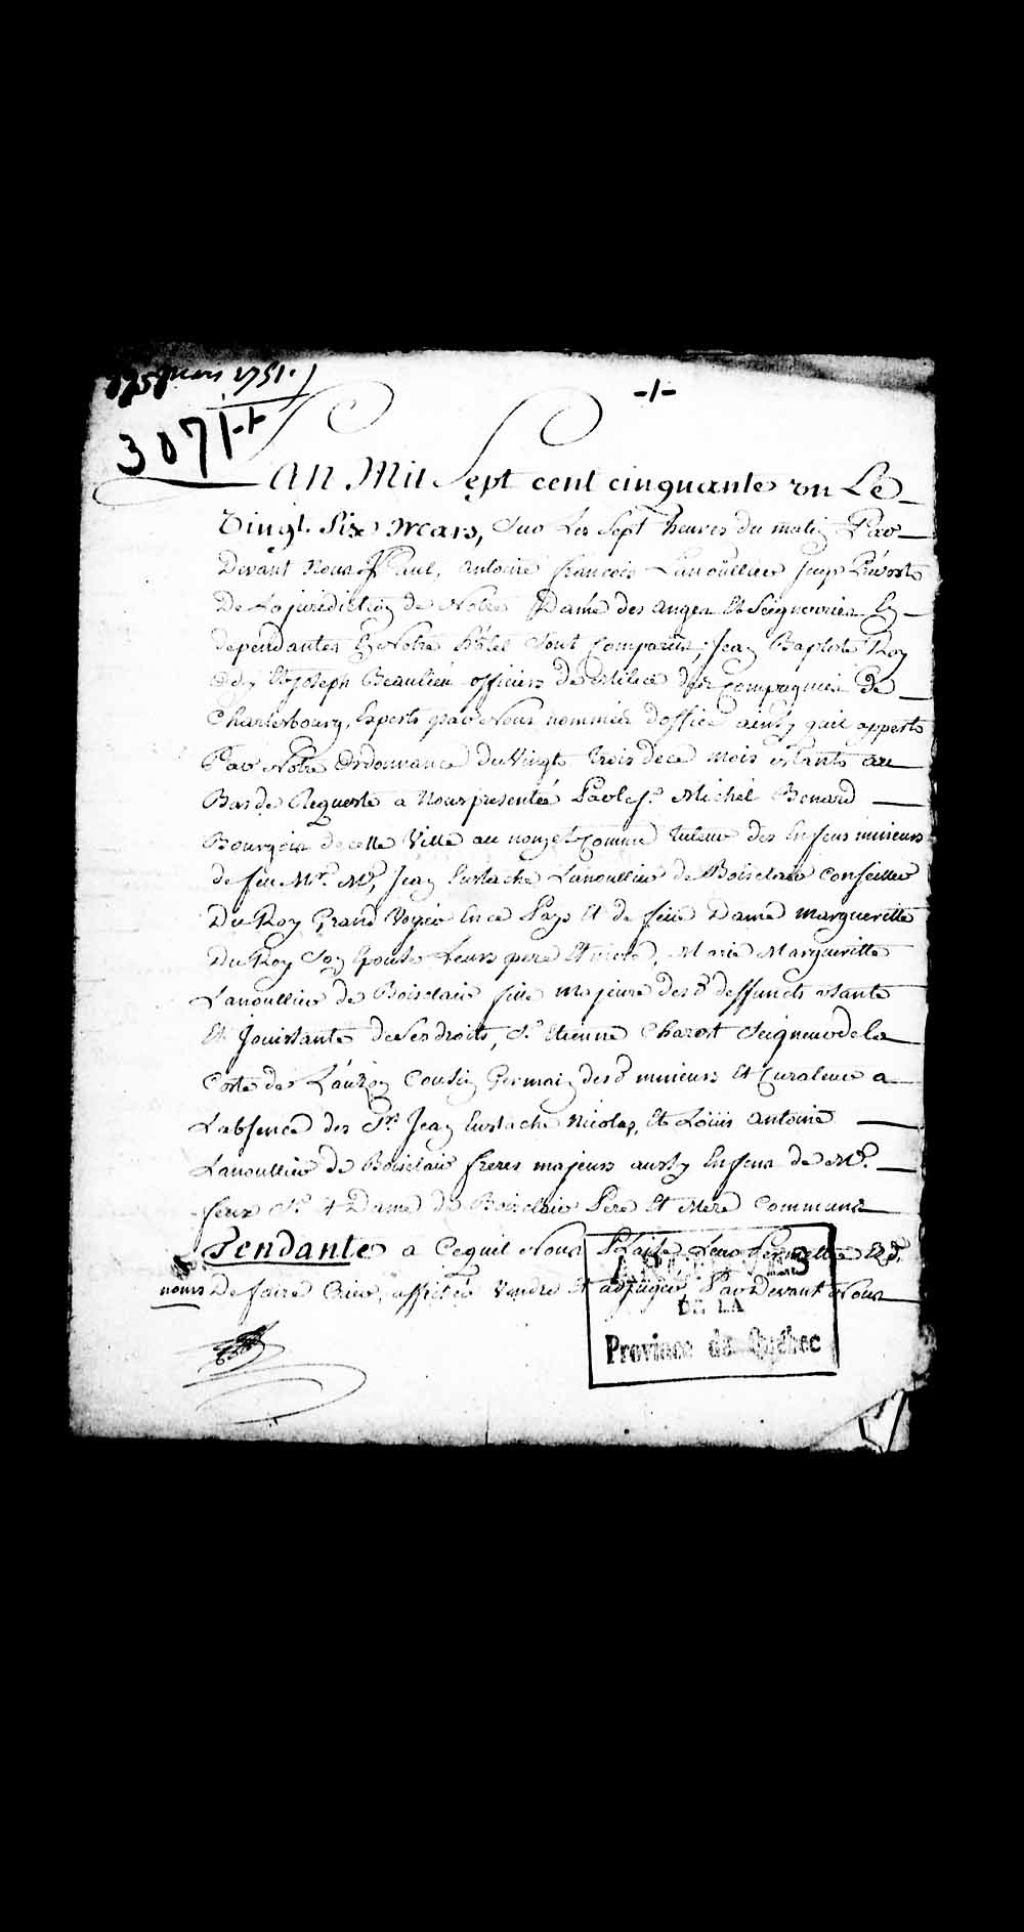 mars 1751.
-1-
3071
L'AN Mil Sept cent cinquante un Le
Vingt Six Mars, Sur Les Sept heures du matin Par
Devant Nous Paul, Antoine francois Lanoüllier Juge Prévost
De La jurisdiction de Notre Dame des anges Et Seigneuries En
dependantes En Notre hôtel Sont Comparus, Jean Baptiste Roy
Et Joseph Beaulieu officiers de Milice des Compagnies De
Charlesbourg, Experts par Nous nommés d'office ainsy quil apperts
Par Notre Ordonnance du Vingt trois de ce mois Etante au
Bas de Requeste a Nous presentée Par le Sr. Michel Benard
Bourgois de cette Ville au nom et Comme tuteur des Enfens mineurs
de feu Mr. Me, Jean Eustache Lanoullier de Boisclair Conseiller
Du Roy Grand Voyer En ce Pays Et de feüe Dame Margueritte
Du Roy Son Epouse Leurs pere Et mere, Marie Marguerite
Lanoullier de Boisclair fille majeure desd. deffuncts usante
Et Jouissante de Ses droits, Sr. Etienne Charest Seigneur de la
Coste de Lauzon Cousin Germain desd. mineurs Et Curateur a
L'absence des Srs. Jean Eustache Nicolas, Et Loüis Antoine
Lanoullier de Boisclair freres majeurs aussy Enfens de Md.
feux Sr. & Dame de Boisclair Pere Et Mere Communs
Tendante a Cequil Nous Plaise Leur Permettre Esd.
noms De faire Crier, afficher Vendre Et adjuger Par Devant Nous
ARCHIVES
DE LA
Province de Québec